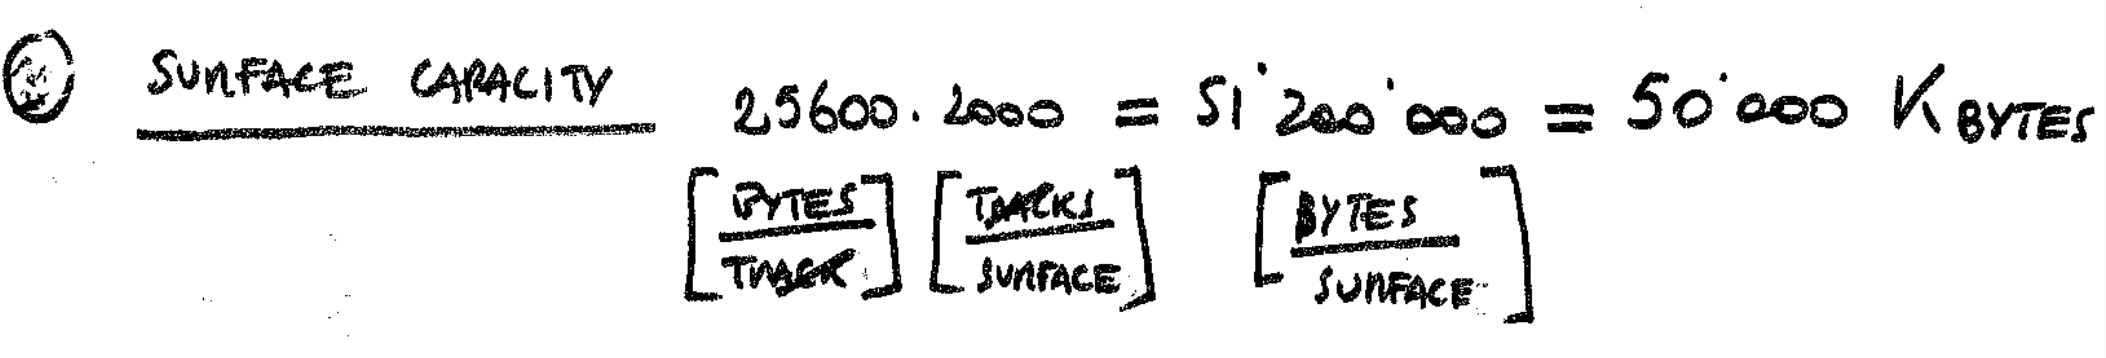 SURFACE CAPACITY 25600. 2000 = 51'200'000 = 50'000 K BYTES
[BYTES/TRACK] [TRACKS/SURFACE] [BYTES/SURFACE]